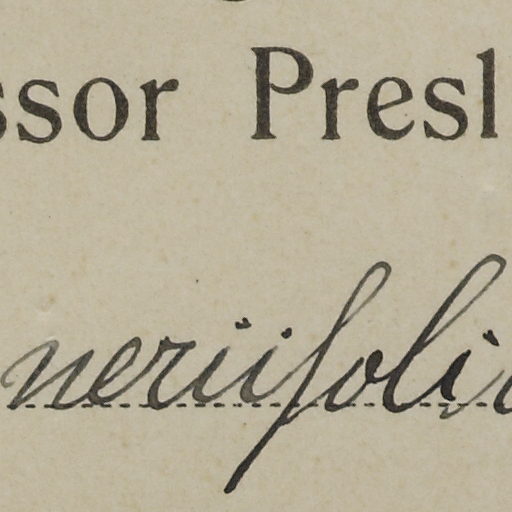 ssor Presl
neriifolia